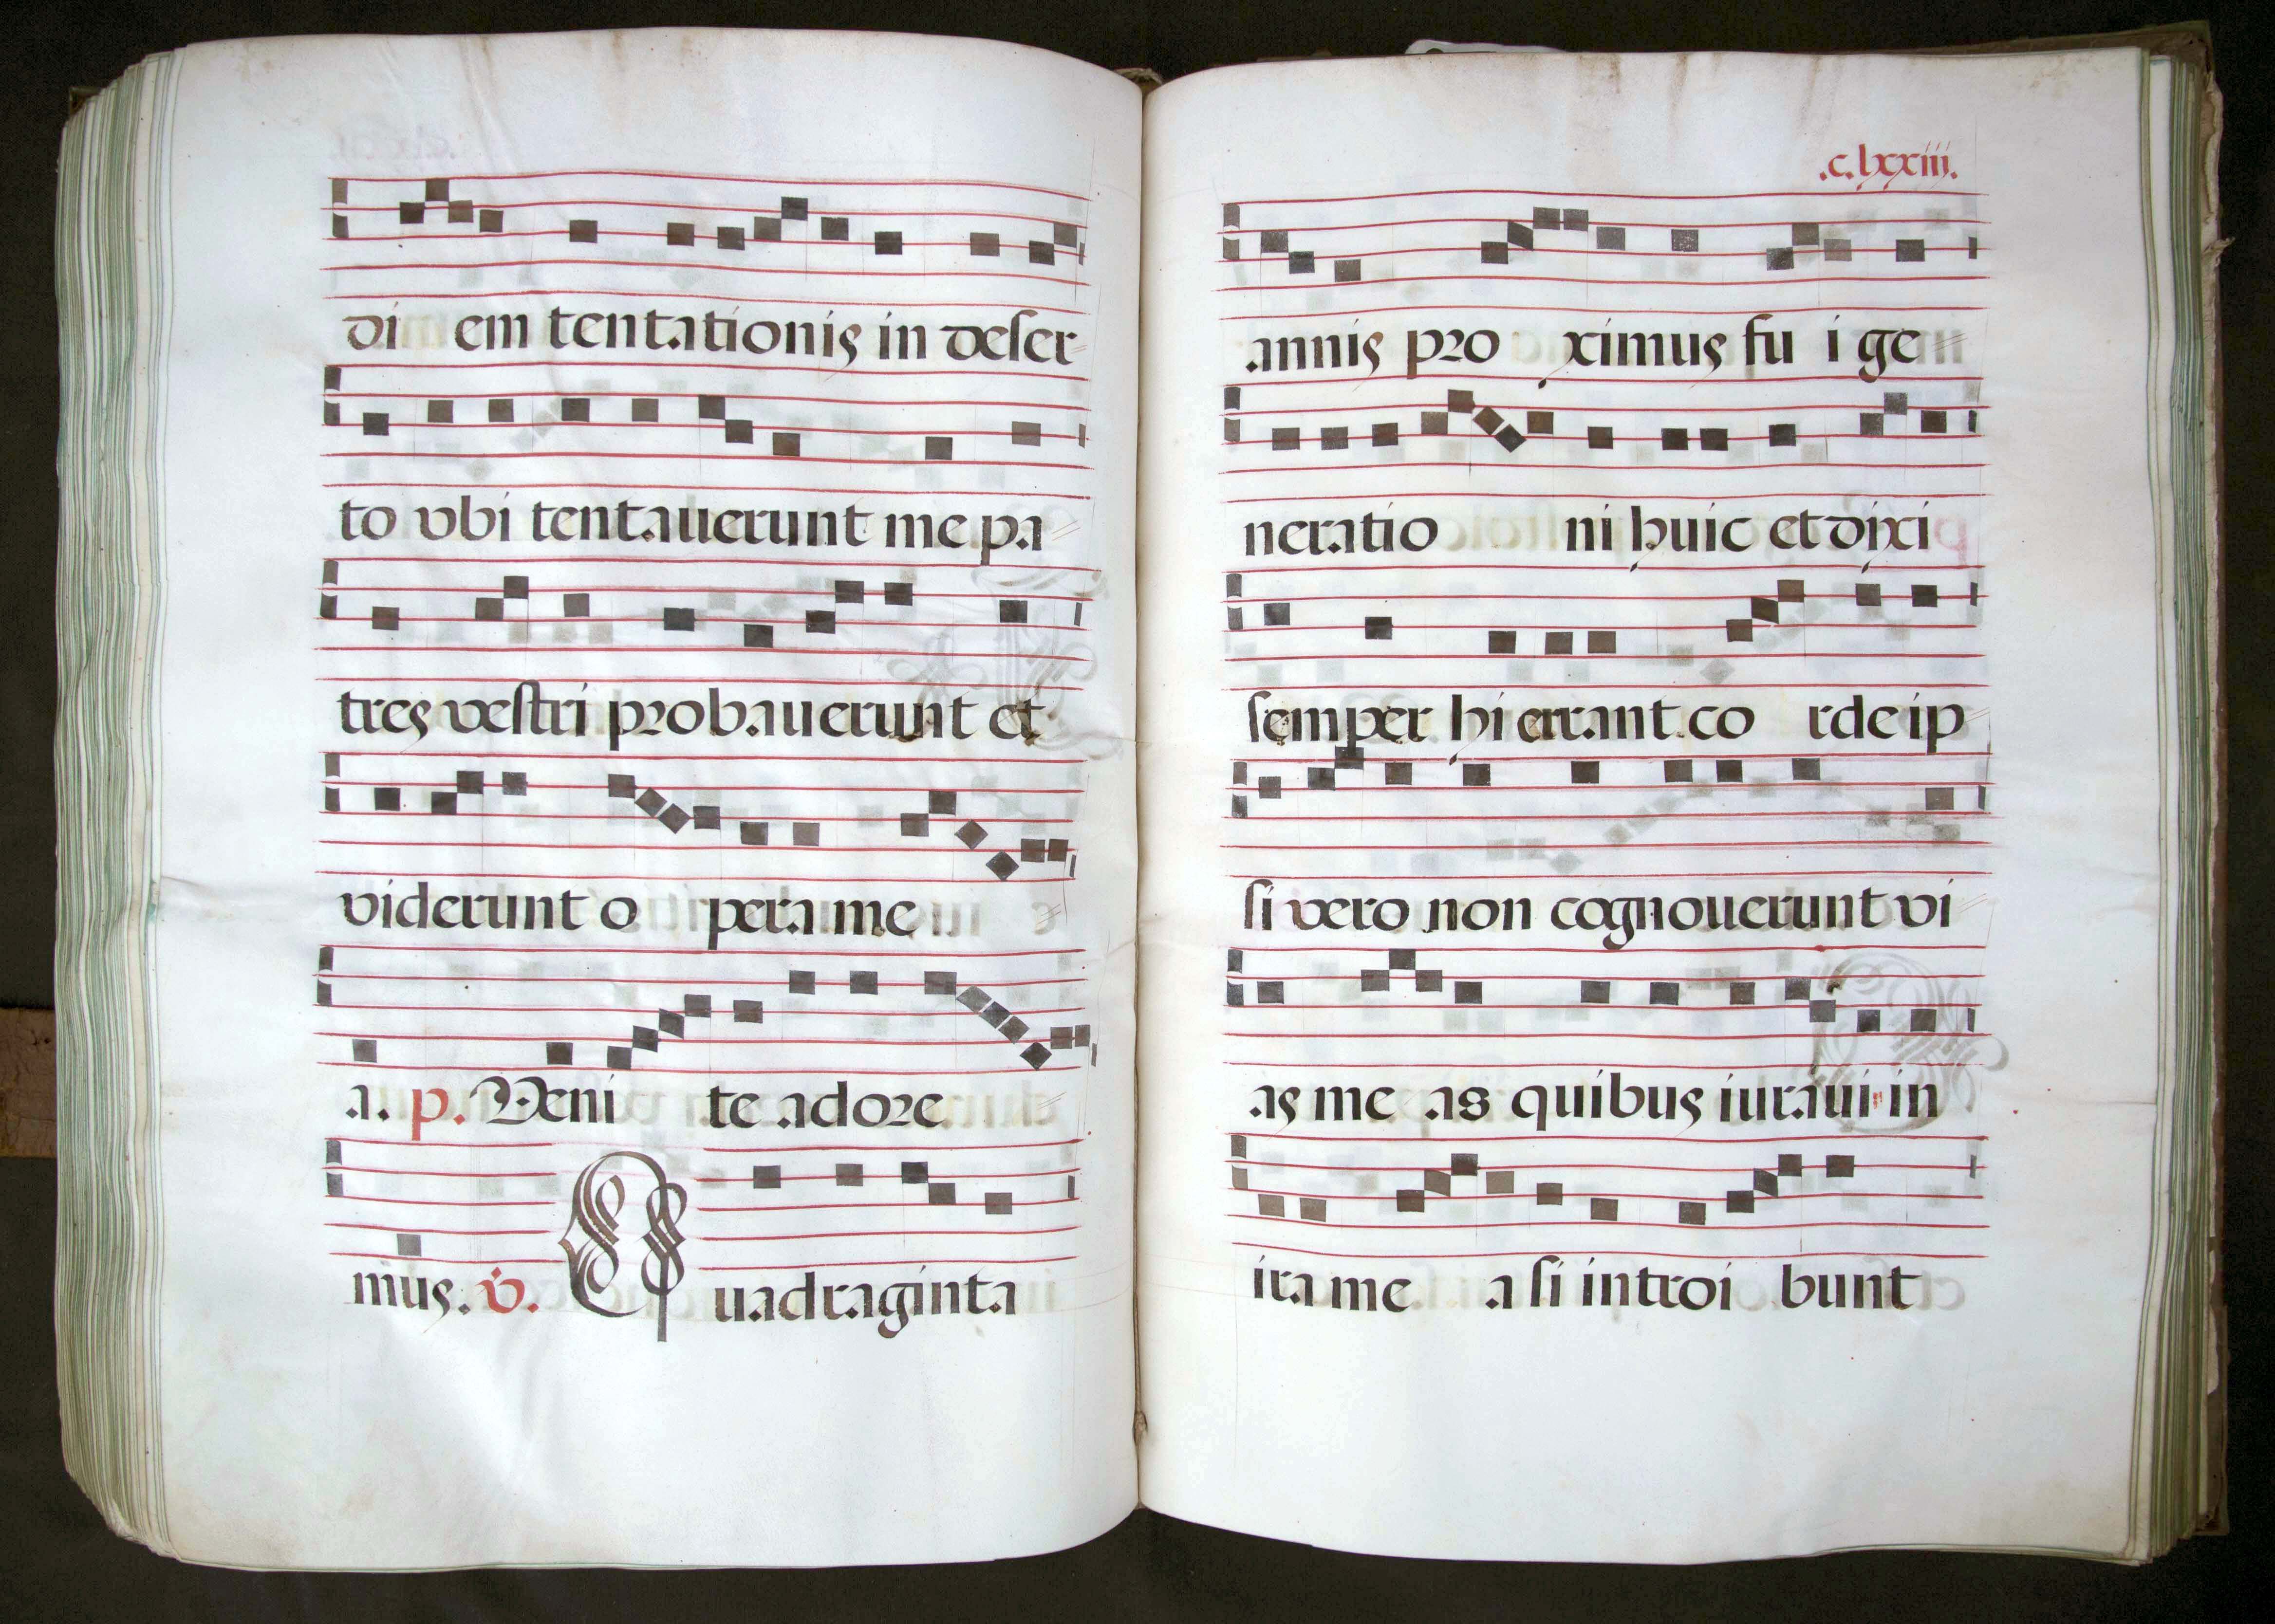 di em tentationis in deser
to vbi tentauerunt me pa
tres vestri probauerunt et
viderunt o pera me
a. p. Veni te adore
mus. v. Quadraginta
.c.lxxiii.
annis pro ximus fu i ge
neratio ni huic et dixi
semper hi errant co rde ip
si vero non cognouerunt vi
as me as quibus iuraui in
ira me a si introi bunt